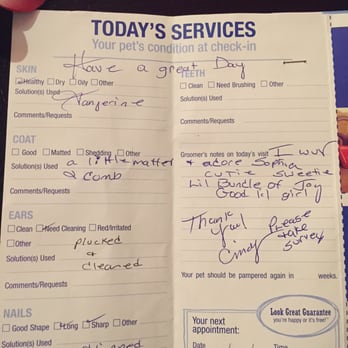 TODAY'S SERVICES
Your pet's condition at check-in
Have a great Day
SKIN
Healthy Dry Oily Other
Solution(s) Used
Tangerine
Comments/Requests
COAT
Good Matted Shedding Other
Solution(s) Used a little matter
& comb
Comments/Requests
EARS
Clean Need Cleaning Red/Irritated
Other plucked
Solution(s) Used &
cleaned
Comments/Requests
NAILS
Good Shape Long Sharp Other
TEETH
Clean Need Brushing Other
Solution(s) Used
Comments/Requests
Groomer's notes on today's visit I wuv
& adore Sophia
cutie sweetie
Lil Bundle of Joy
Good lil girl
Thank
you!
Cindy
Please
take
survey
Your pet should be pampered again in weeks.
Look Great Guarantee
you're happy or it's free!
Your next
appointment:
Date Time